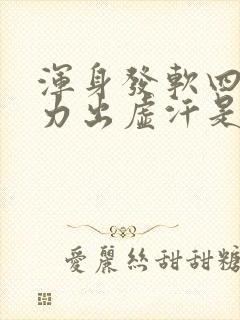 渾身發軟四
力出虛汗是
愛麗絲甜甜糖